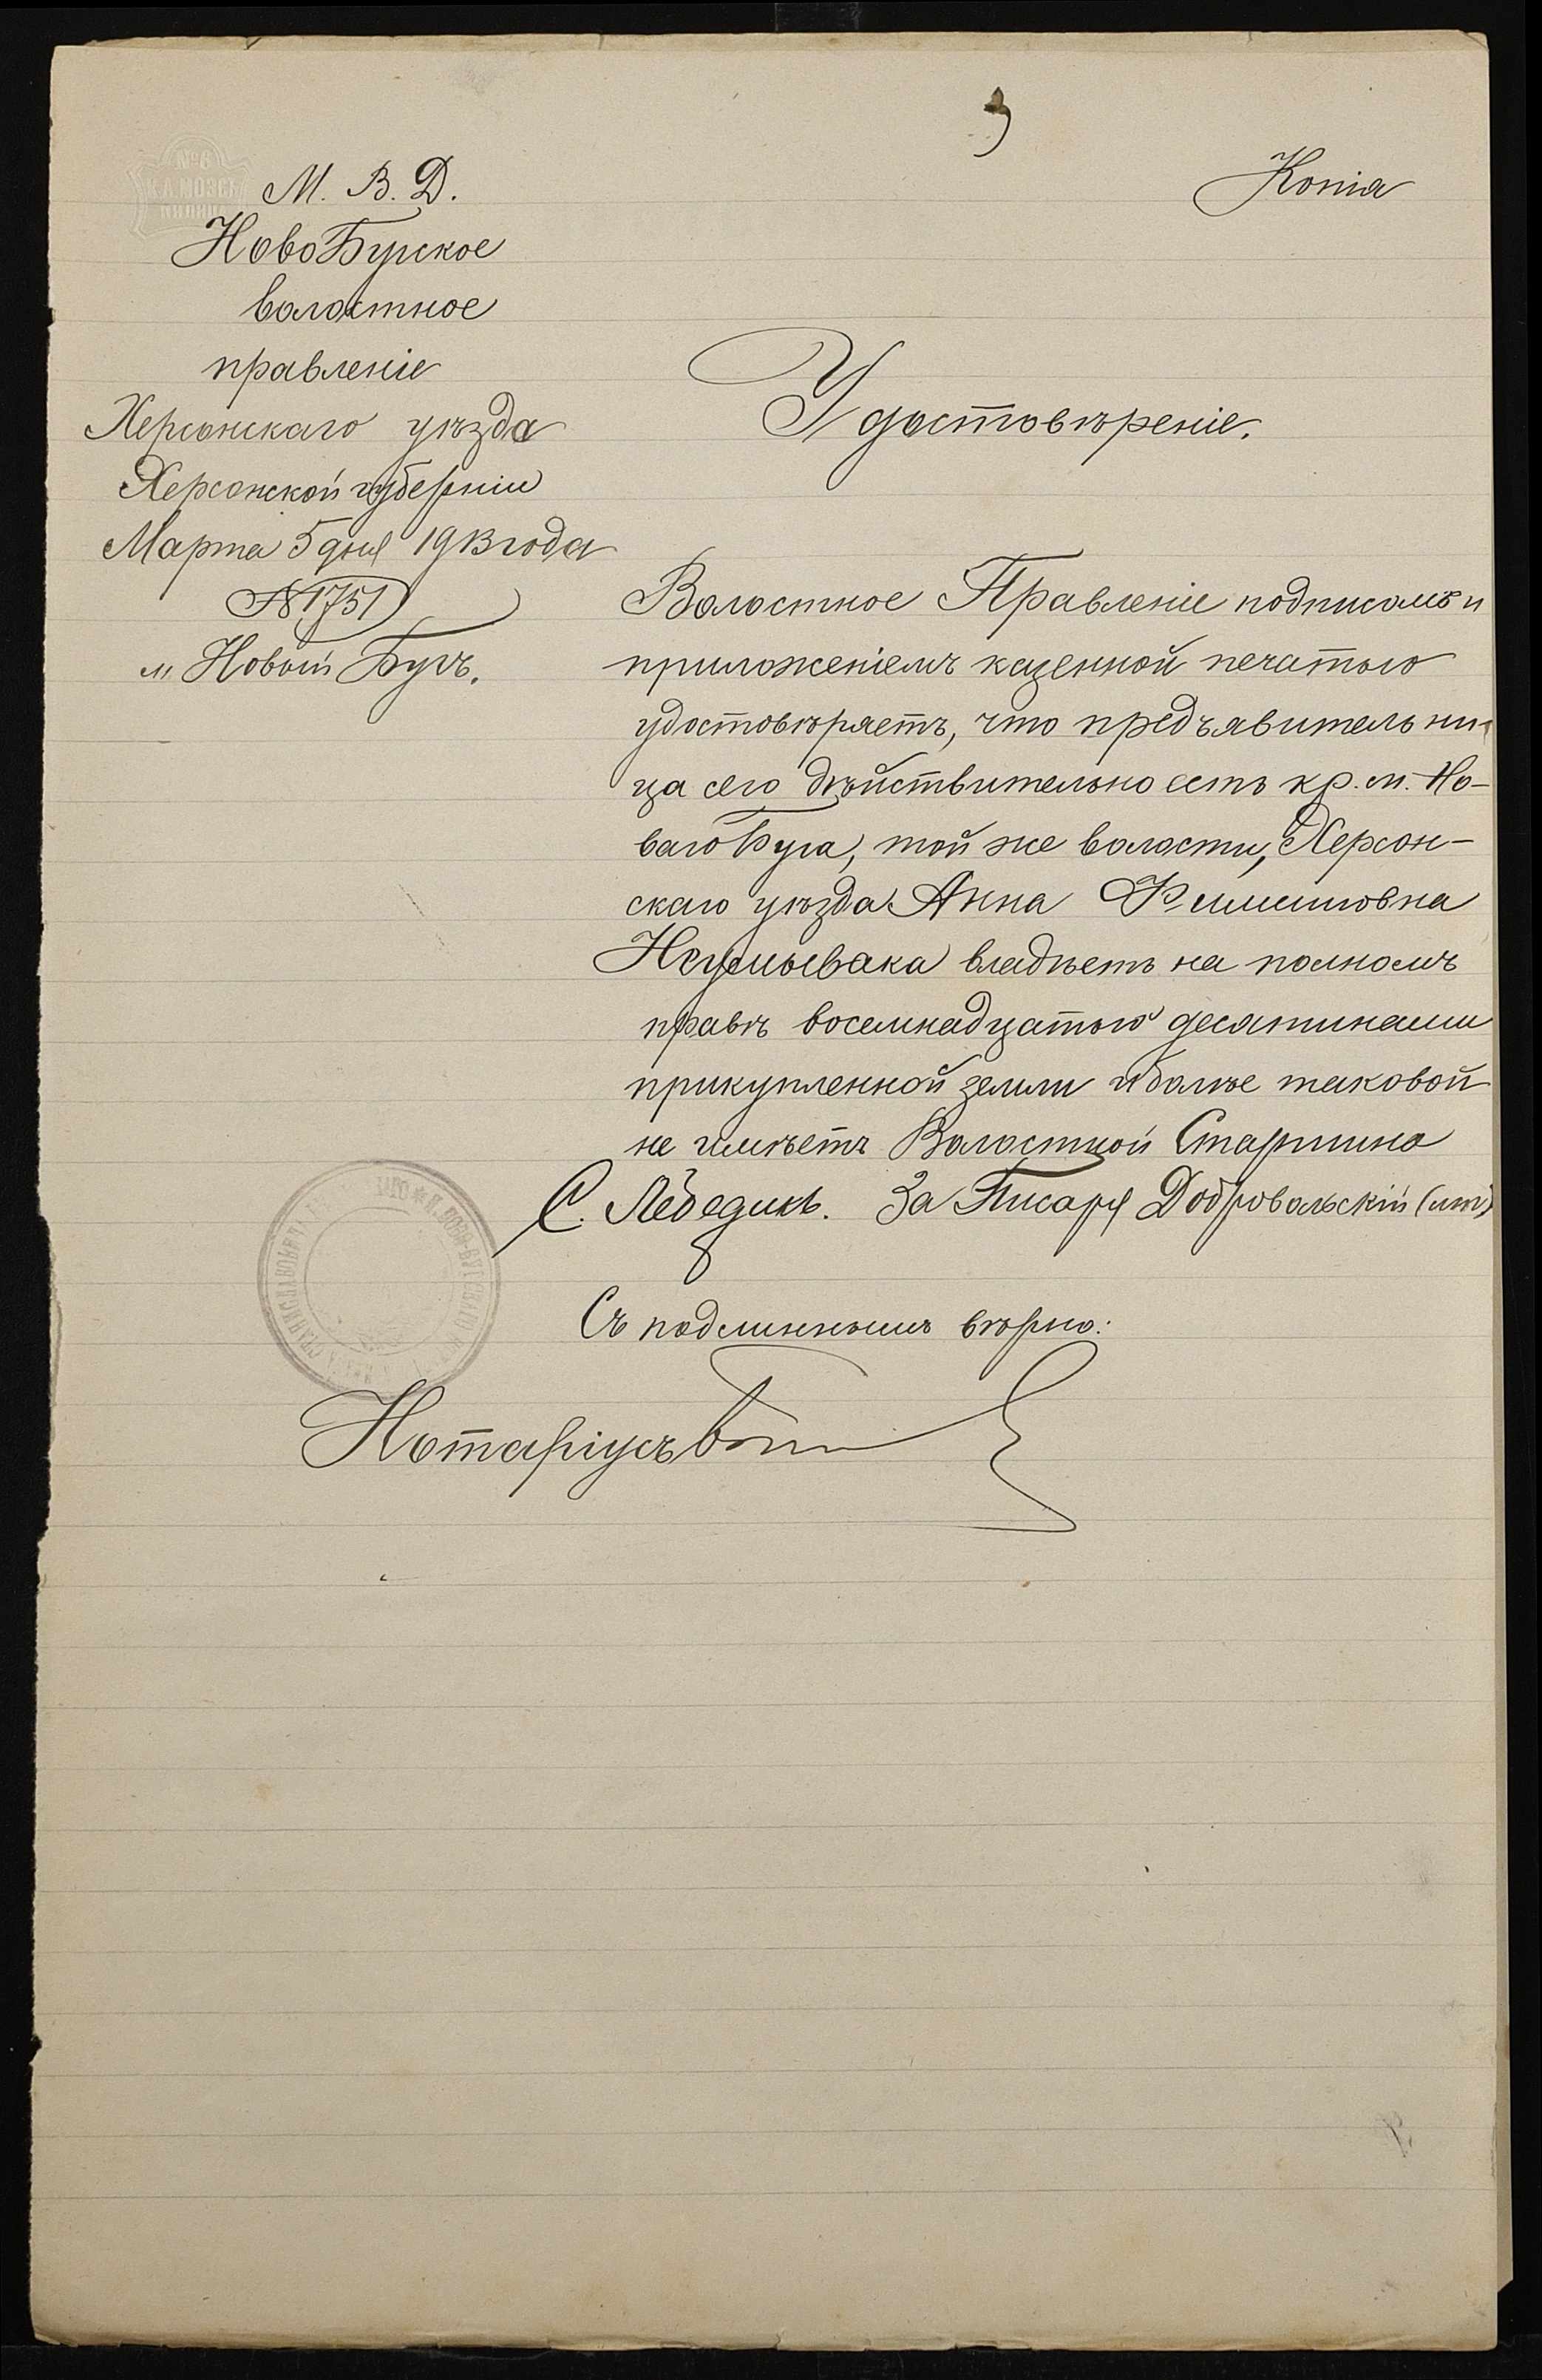 Копія
М. В. Д.
НовоБугское
волостное
правленіе
Херсонскаго уѣзда
Херсонской губерніи
Марта 5 дня 1913 года
№ 1751
м. Новый Бугъ.
Удостовѣреніе.
Волостное Правленіе подписомъ и
приложеніемъ казенной печатью
удостовѣряетъ, что предъявительни-
ца сего дѣйствительно есть кр. м. Но-
ваго Буга, той же волости, Херсон-
скаго уѣзда Анна
владѣетъ на полномъ
правѣ восемнадцатью десятинами
прикупленной земли и болѣе таковой
не имѣетъ Волостной Старшина
С. Лебедикъ. За Писаря Добровольскій
Съ подлиннымъ вѣрно:
Нотаріусъ